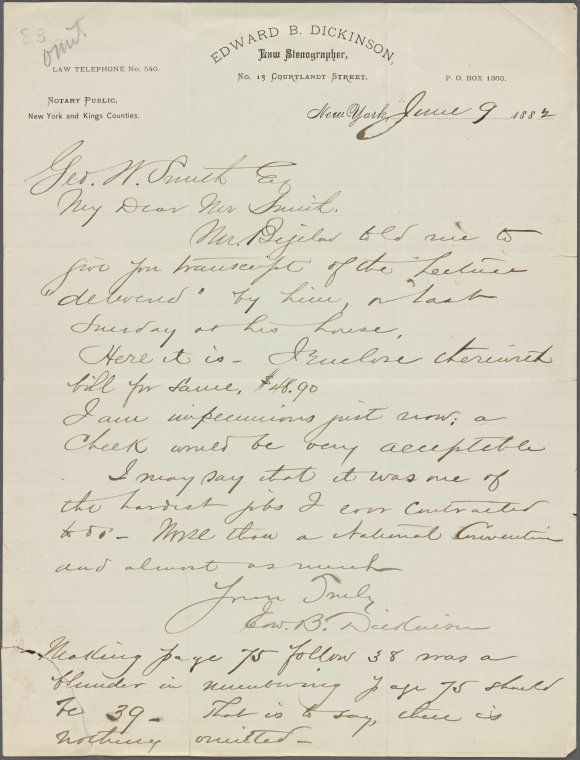 83
omit
EDWARD B. DICKINSON,
Law Stenographer,
LAW TELEPHONE No. 540.
No. 13 COURTLANDT STREET,
P. O. BOX 1360.
NOTARY PUBLIC,
New York and Kings Counties.
New York, June 9 1882
Geo. W. Smith Esq
My Dear Mr Smith.
Mr. Bigelow told me to
give you transcript of the Lecture
"delivered" by him, on last
Sunday at his house.
Here it is – I Enclose therewith
bill for same, $48.90
I am impecunious just now; a
Check would be very acceptible
I may say that it was one of
the hardest jobs I ever contracted
to do – Worse than a National Convention
and almost as much
Yours Truly
Edw. B. Dickinson
Making page 75 follow 38 was a
blunder in numbering page 75 should
be 39 – That is to say, there is
nothing omitted –